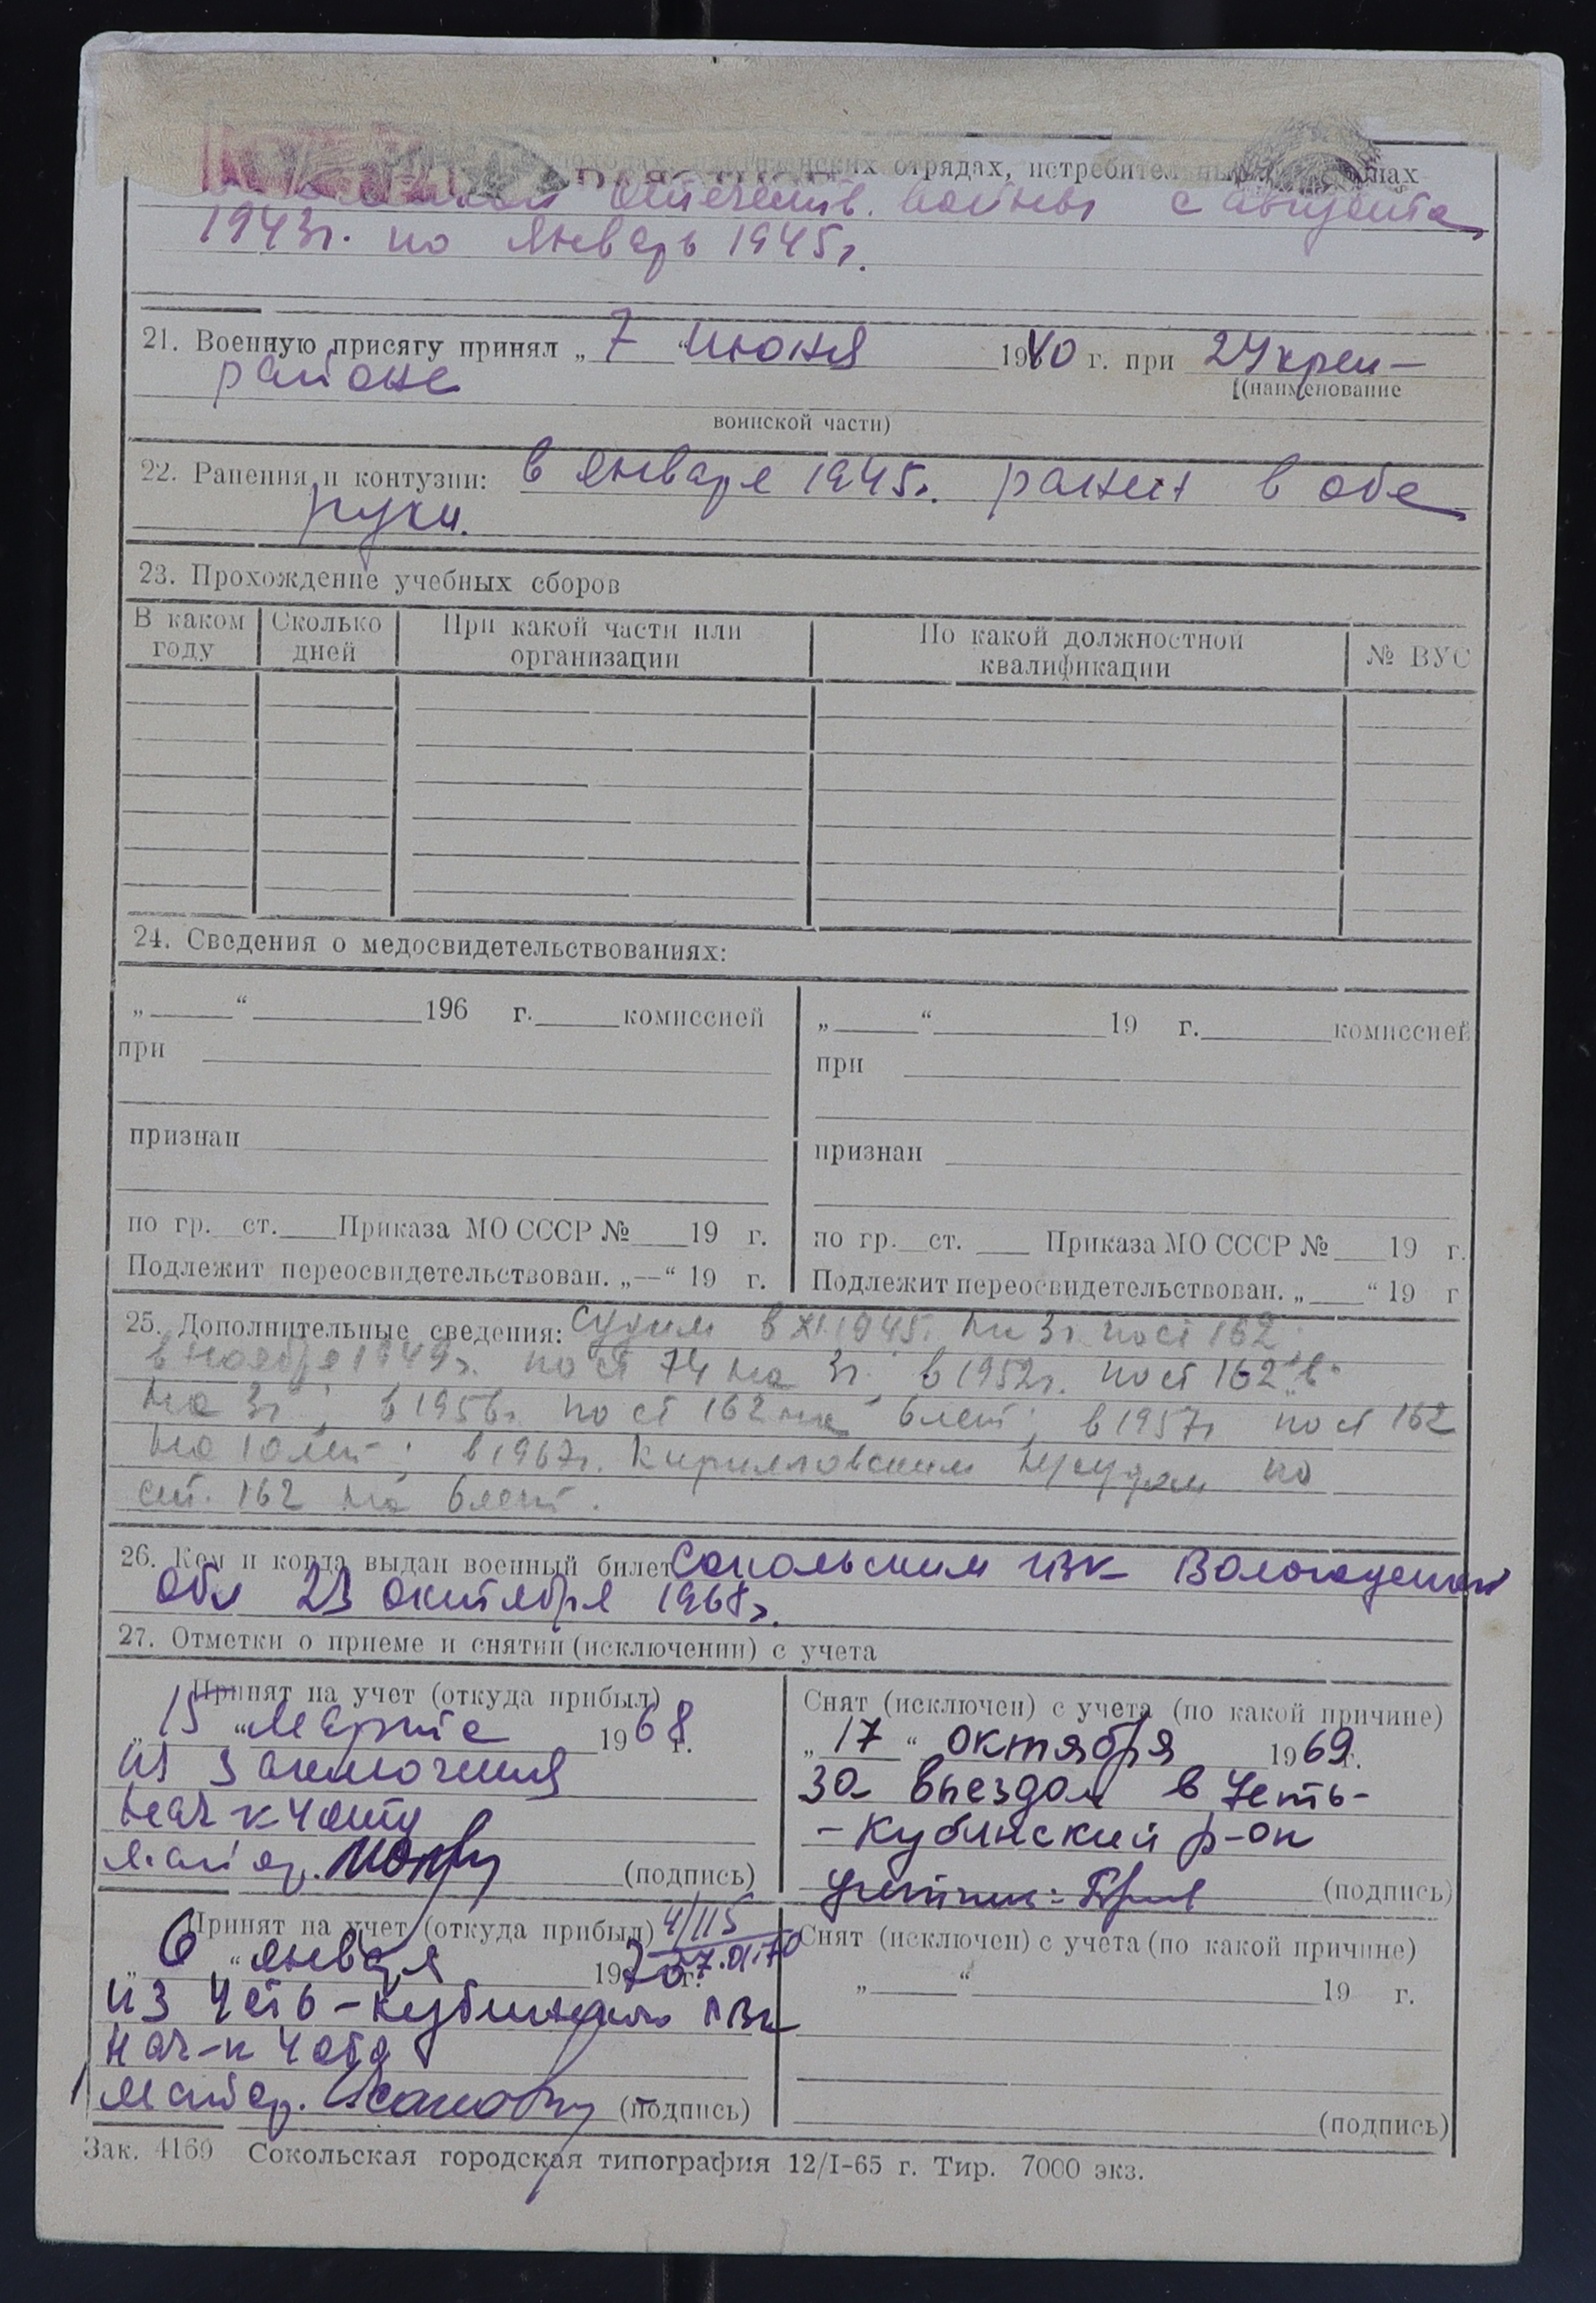 отрядах, истребительных
Отечеств. войны с августа
1943г. по январь 1945г.
21. Военную присягу принял „ 7 “ июня 1940 г. при 24 креп-
(наименование
районе
воинской части)
22. Ранения и контузии: в январе 1945г. ранен в обе
руки.
23. Прохождение учебных сборов
В каком году | Сколько дней | При какой части или организации | По какой должностной квалификации | № ВУС
24. Сведения о медосвидетельствованиях:
„ “ 196 г. комиссией
при
признан
по гр. ст. Приказа МО СССР № 19 г.
Подлежит переосвидетельствован. „—“ 19 г.
„ “ 19 г. комиссией
при
признан
по гр. ст. Приказа МО СССР № 19 г.
Подлежит переосвидетельствован. „ “ 19 г
25. Дополнительные сведения: Судим в XI.1945г. на 3г. по ст 162
в ноябре 1949г. по ст 74 на 3г.; в 1952г. по ст 162 "в"
на 3г; в 1956г. по ст 162 на 6 лет; в 1957г по ст 162
на 10 лет; в 1967г. Кирилловским нарсудом по
ст. 162 на 6 лет.
26. Кем и когда выдан военный билет Сокольским Вологодской
обл 23 октября 1968г.
27. Отметки о приеме и снятии (исключении) с учета
Принят на учет (откуда прибыл)
„ 15 “ Марта 1968 г.
из заключения
нач-к 4 отд
Майор. (подпись)
Снят (исключен) с учета (по какой причине)
„ 17 “ октября 1969 г.
за выездом в Усть-
-Кубинский р-он
(подпись)
Принят на учет (откуда прибыл) 4/115
„ 6 “ января 1970 г. 7.01.70
из Усть-Кубинского РВК
нач-к 4 отд
Майор. (подпись)
Снят (исключен) с учета (по какой причине)
„ “ 19 г.
(подпись)
Зак. 4169 Сокольская городская типография 12/I-65 г. Тир. 7000 экз.